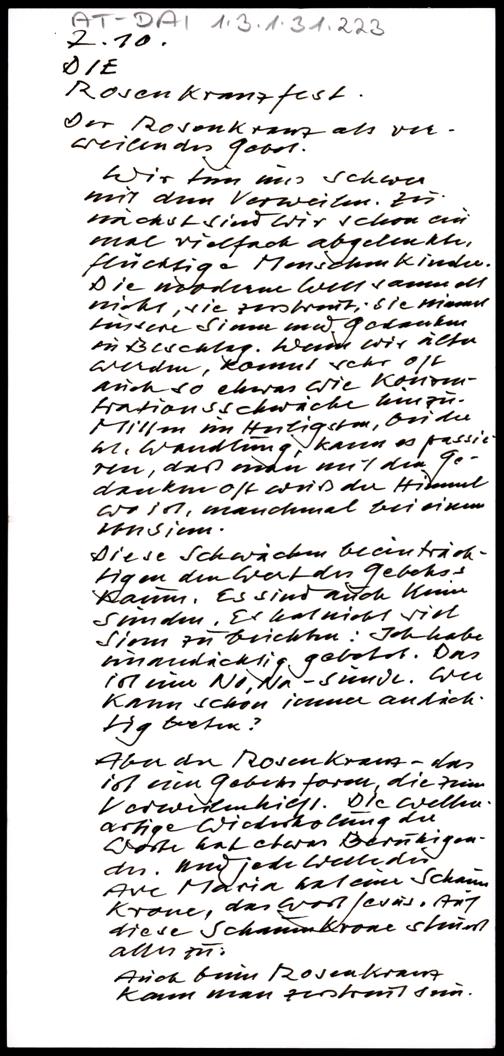 AT-DAI 1.3.1.31.223
7.10.
DIE
Rosenkranzfest.
Der Rosenkranz als ver-
weilendes Gebet.
Wir tun uns schwer
mit dem Verweilen. Zu-
nächst sind wir schon ein
mal vielfach abgelenkte,
flüchtige Menschenkinder.
Die moderne Welt sammelt
nicht, sie zerstreut; sie nimmt
unsere Sinne und Gedanken
in Beschlag. Wenn wir älter
werden, kommt sehr oft
auch so etwas wie Konzen-
trationsschwäche hinzu.
Mitten im Heiligsten, bei der
hl. Wandlung, kann es passie-
ren, daß man mit den Ge-
danken oft weiß der Himmel
wo ist, manchmal bei einem
Unsinn.
Diese Schwächen beeinträch-
tigen den Wert des Gebetes
kaum. Es sind auch keine
Sünden. Es hat nicht viel
Sinn zu beichten: Ich habe
unandächtig gebetet. Das
ist eine No, Na-Sünde. Wer
kann schon immer andäch-
tig beten?
Aber der Rosenkranz - das
ist eine Gebetsform, die zum
Verweilen hilft. Die wellen-
artige Wiederholung der
Worte hat etwas Beruhigen-
des. Und jede Welle des
Ave Maria hat eine Schaum
Krone, das Wort Jesus. Auf
diese Schaumkrone steuert
alles zu.
Auch beim Rosenkranz
kann man zerstreut sein.